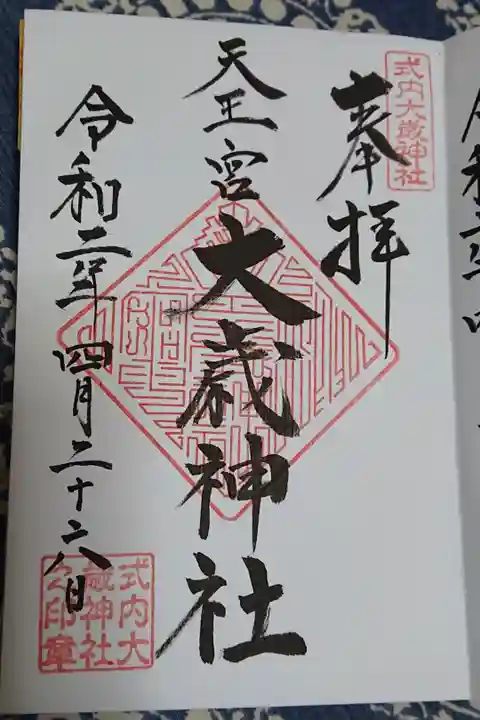 式内大歳神社
奉拝
天王宮大歳神社
令和二年四月二十六日
式内大
歳神社
之印章